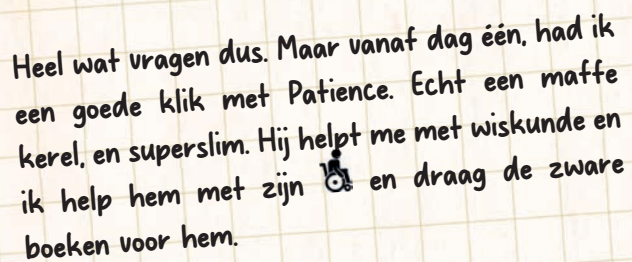 Heel wat vragen dus. Maar vanaf dag één, had ik
een goede klik met Patience. Echt een maffe
kerel, en superslim. Hij helpt me met wiskunde en
ik help hem met zijn en draag de zware
boeken voor hem.